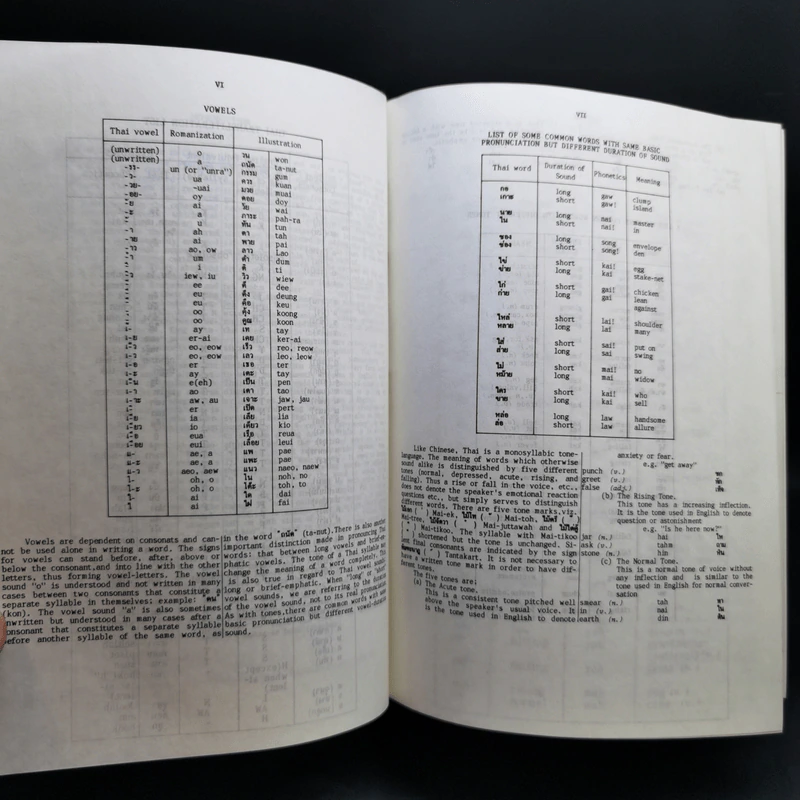 VI
VOWELS
Thai vowel Romanization Illustration
(unwritten) o วน won
(unwritten) a ถนัด ta-nut
-รร- un (or "unra") กรรม gum
-ว- ua ควร kuan
-วย- -uai มวย muai
-อย- oy ดอย doy
ัย ai วัย wai
-ะ a ภาระ pah-ra
ั u ทัน tun
-า ah ตา tah
-าย ai พาย pai
-าว ao, ow ลาว Lao
ำ um ดำ dum
ิ i ติ ti
ิว iew, iu วิว wiew
ี ee ดี dee
ึ eu ดึง deung
ื eu คือ keu
ุ oo คุ้ง koong
ู oo คูณ koon
เ- ay เท tay
เ-ย er-ai เคย ker-ai
เ-็ว eo, eow เร็ว reo, reow
เ-ว eo, eow เลว leo, leow
เ-อ er เธอ ter
เ-ะ ay เตะ tay
เ-็น e(eh) เป็น pen
เ-า ao เตา tao
เ-าะ aw, au เจาะ jaw, jau
เ-ิ er เปิด pert
เ-ีย ia เลีย lia
เ-ียว io เคียว kio
เ-ือ eua เรือ reua
เ-ือย eui เลือย leui
แ- ae, a แพ pae
แ-ะ ae, a แพะ pae
แ-ว aeo, aew แนว naeo, naew
โ- oh, o โน noh, no
โ-ะ oh, o โต๊ะ toh, to
ใ- ai ใด dai
ไ- ai ไฝ fai
Vowels are dependent on consonats and can-
not be used alone in writing a word. The signs
for vowels can stand before, after, above or
below the consonant,and into line with the other
letters, thus forming vowel-letters. The vowel
sound "o" is understood and not written in many
cases between two consonants that constitute a
separate syllable in themselves: example: "คน"
(kon). The vowel sound "a" is also sometimes
unwritten but understood in many cases after a
consonant that constitutes a separate syllable
before another syllable of the same word, as
in the word "ถนัด" (ta-nut).There is also another
important distinction made in pronouncing Thai
words: that between long vowels and brief-em-
phatic vowels. The tone of a Thai syllable may
change the meaning of a word completely. This
is also true in regard to Thai vowel sounds,
long or brief-emphatic. When "long" or "short"
vowel sounds, we are referring to the duration
of the vowel sound, not to its real pronunciation.
As with tones,there are common words with same
basic pronunciation but different vowel-duration
sound.
VII
LIST OF SOME COMMON WORDS WITH SAME BASIC
PRONUNCIATION BUT DIFFERENT DURATION OF SOUND
Thai word Duration of Sound Phonetics Meaning
กอ long gaw clump
เกาะ short gaw! island
นาย long nai master
ใน short nai! in
ซอง long song envelope
ซ่อง short song! den
ไข่ short kai! egg
ข่าย long kai stake-net
ไก่ short gai! chicken
ก่าย long gai lean
against
ไหล่ short lai! shoulder
หลาย long lai many
ใส่ short sai! put on
ส่าย long sai swing
ไม่ short mai! no
หม้าย long mai widow
ใคร short kai! who
ขาย long kai sell
หล่อ long law handsome
ล่อ short law allure
Like Chinese, Thai is a monosyllabic tone-
language. The meaning of words which otherwise
sound alike is distinguished by five different
tones (normal, depressed, acute, rising, and
falling). Thus a rise or fall in the voice, etc.,
does not denote the speaker's emotional reaction
questions etc., but simply serves to distinguish
different words. There are five tone marks,viz.
Mai-ek, ไม้โท Mai-toh, ไม้ตรี
Mai-tree, ไม้จัตวา Mai-juttawah and ไม้ไต่คู้
The syllable with Mai-tikoo
shortened but the tone is unchanged. Si-
lent final consonants are indicated by the sign
Tantakart. It is not necessary to
have a written tone mark in order to have dif-
ferent tones.
The five tones are:
(a) The Acute tone.
This is a consistent tone pitched well
above the speaker's usual voice. It
is the tone used in English to denote
anxiety or fear.
e.g. "get away"
punch (v.) ชก
greet (v.) ทัก
false (adj.) เท็จ
(b) The Rising Tone.
This tone has a increasing inflection.
It is the tone used in English to denote
question or astonishment
e.g. "Is he here now?"
jar (n.) hai ไห
ask (v.) tahm ถาม
stone (n.) hin หิน
(c) The Normal Tone.
This is a normal tone of voice without
any inflection and is similar to the
tone used in English for normal conver-
sation
smear (v.) tah ทา
in (v.) nai ใน
earth (n.) din ดิน